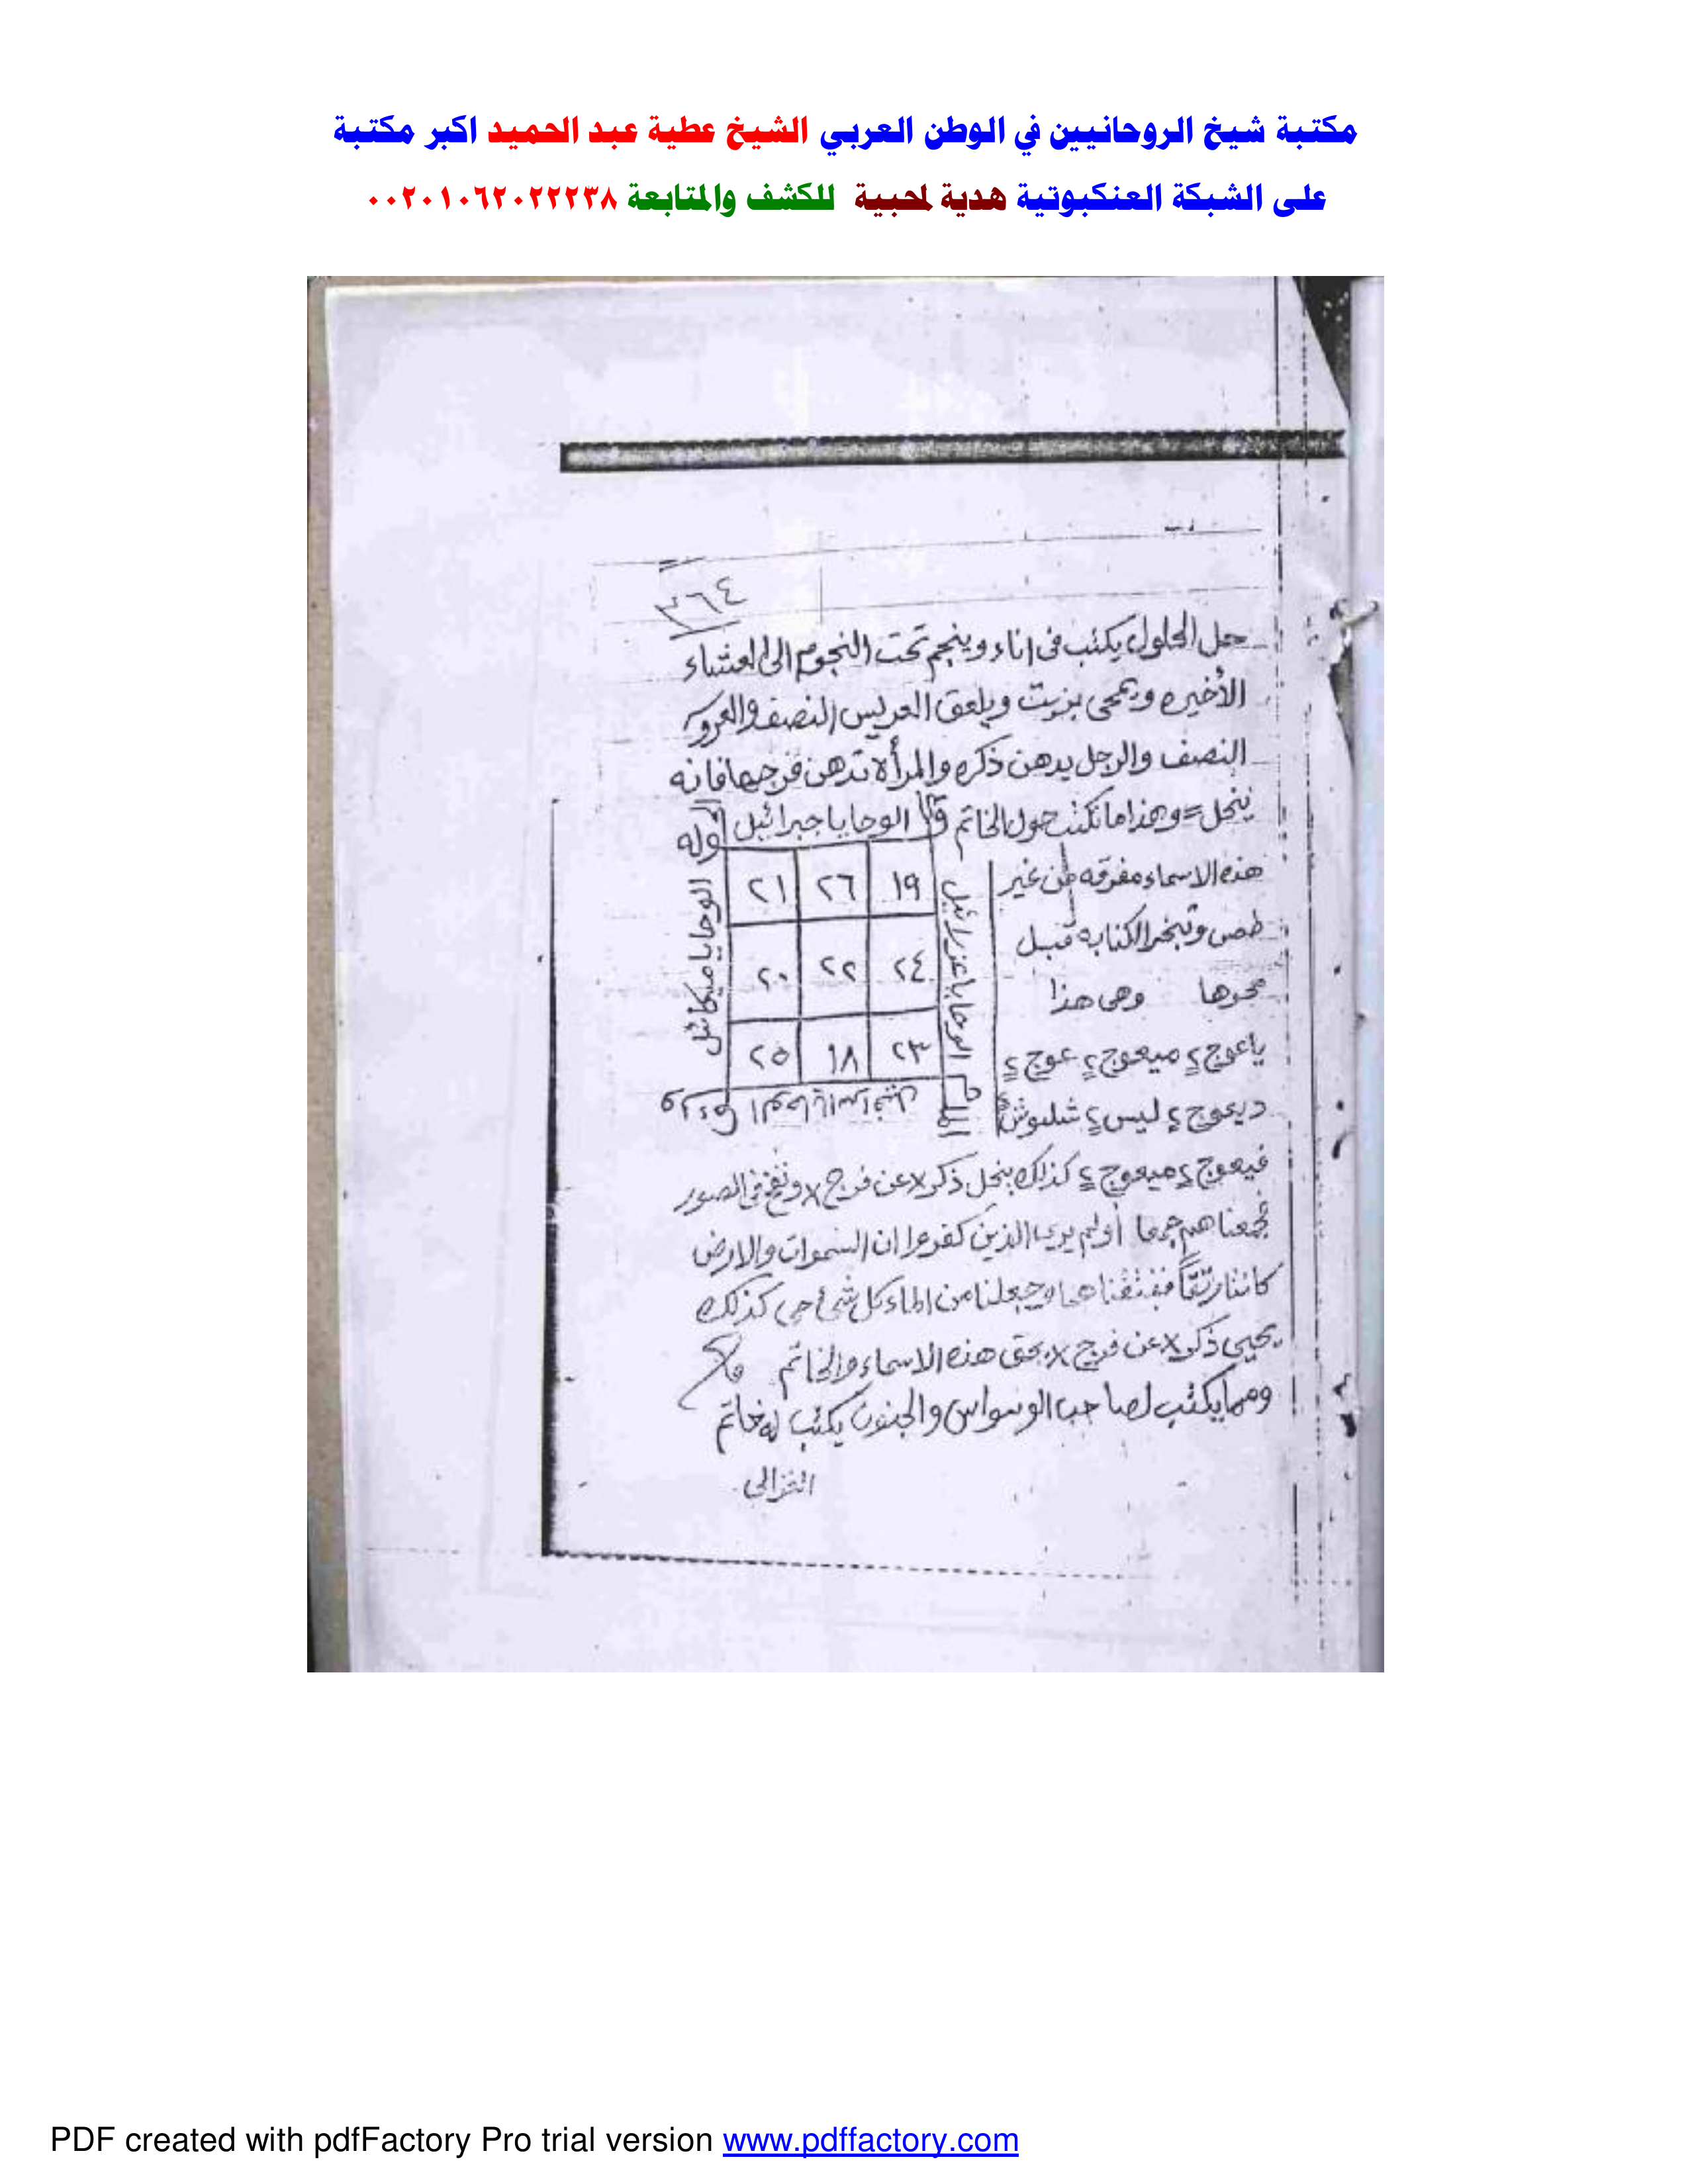 مكتبة شيخ الروحانيين في الوطن العربي الشيخ عطية عبد الحميد اكبر مكتبة
على الشبكة العنكبوتية هدية لمحبية للكشف والمتابعة ٠٠٢٠١٠٦٢٠٢٢٢٣٨
٣٦٤
حل المحلول يكتب فى اناء وينجم تحت النجوم الى العشاء
الأخيره ويمحى بزيت ويلعق العريس النصف والعروس
النصف والرجل يدهن ذكره والمرأة تدهن فرجها فانه
ينحل = وهذا ما تكتب حول الخاتم
الوحا يا جبرائيل
قوله
هذه الاسماء مفرقه من غير
١٩ ٢٦ ٢١
الوحا يا عزرائيل
الوحا يا ميكائيل
طمس وتبخر الكتابه قبل
٢٤ ٢٢ ٢٠
محوها وهى هذا
ياعوج ٢ ميعوج ٢ عوج ٢
٢٣ ١٨ ٢٥
ديعوج ٢ ليس ٢ شلبوش
فيعوج ٢ ميعوج ٢ كذلك ينحل ذكر x عن فرج x ونفخ فى الصور
فجمعناهم جمعا أولم ير الذين كفروا ان السموات والارض
كانتا رتقاً ففتقناهما وجعلنا من الماء كل شئ حى كذلك
يحيى ذكر x عن فرج x بحق هذه الاسماء والخاتم
ومما يكتب لصاحب الوسواس والجنون يكتب له خاتم
الغزالى
PDF created with pdfFactory Pro trial version www.pdffactory.com